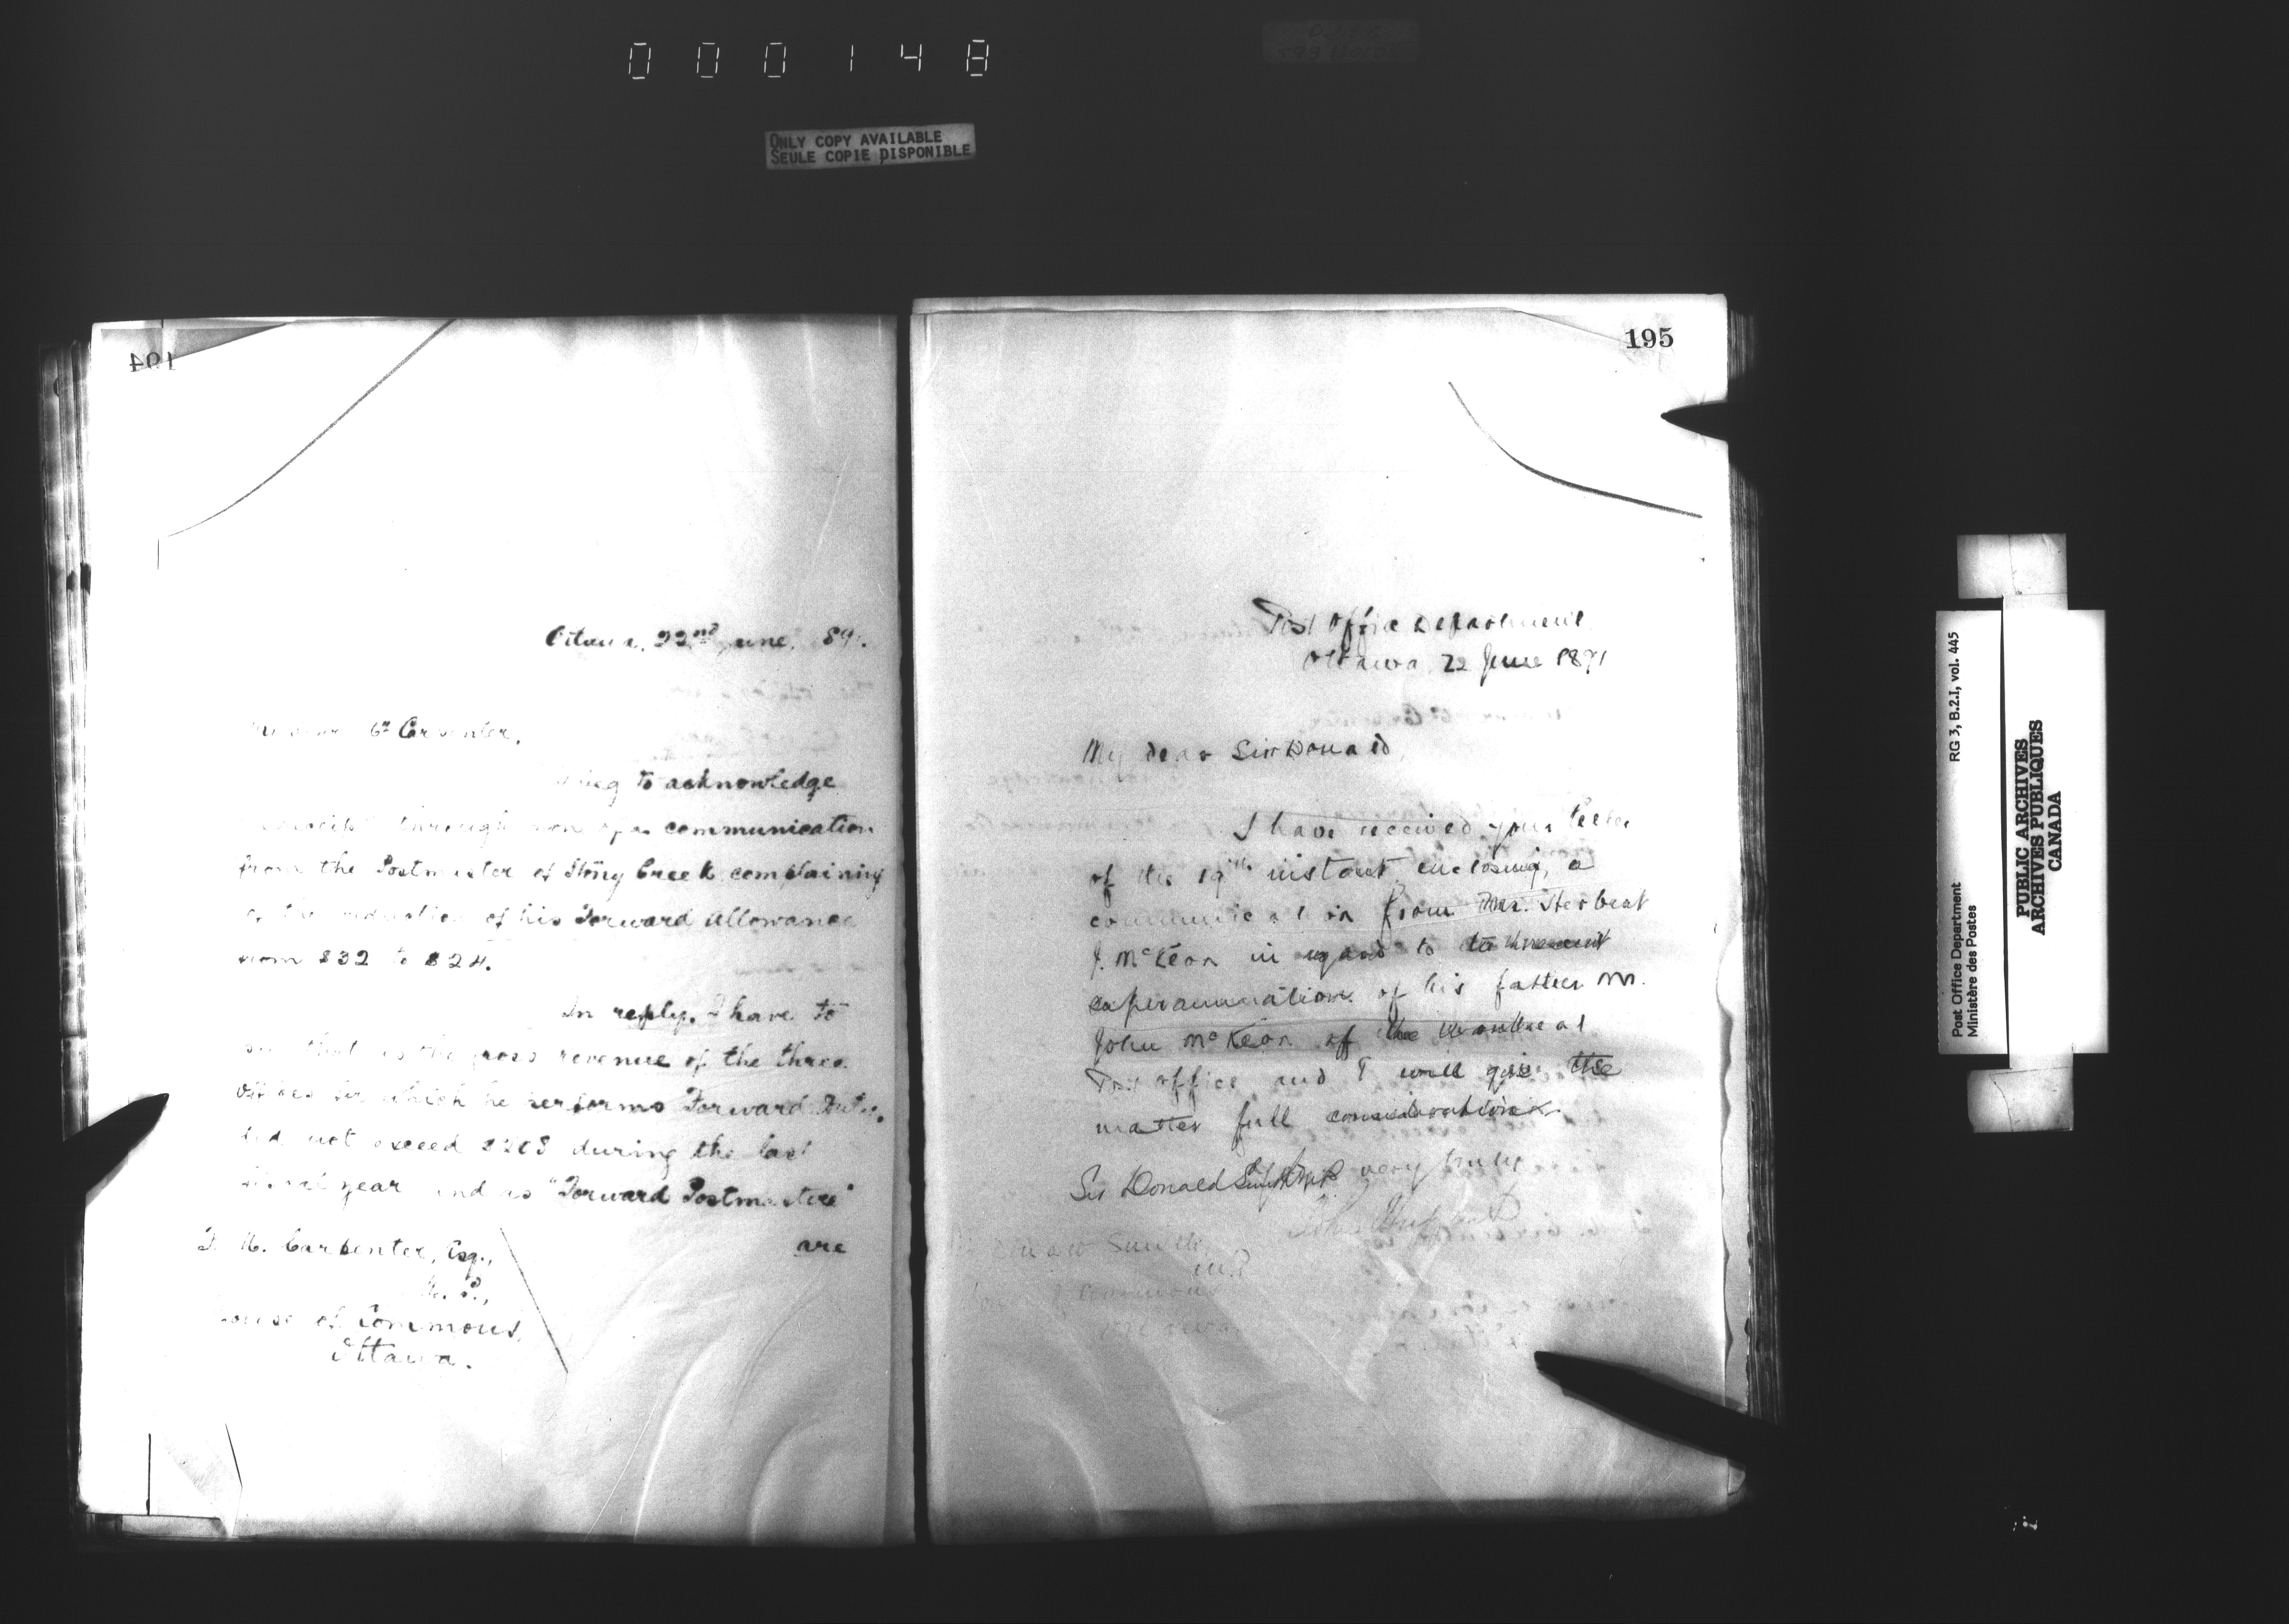 000148
ONLY COPY AVAILABLE
SEULE COPIE DISPONIBLE
194
Ottawa, 22nd June, 189.
My dear Mr Carpenter,
I beg to acknowledge
through of a communication
from the Postmaster of Stony Creek complaining
of the reduction of his Forward Allowance
from $32 to $24.
In reply, I have to
say that as the gross revenue of the three
offices for which he performs Forward Duties,
did not exceed $208 during the last
fiscal year and as "Forward Postmasters"
are
F. M. Carpenter, Esq.,
M. P.,
House of Commons,
Ottawa.
195
Post Office Department
Ottawa, 22 June 1891
My dear Sir Donald,
I have received your letter
of the 19th instant enclosing a
communication from Mr. Herbert
J. McKeon in regard to the
superannuation of his father Mr.
John McKeon of the Montreal
Post office and I will give the
matter full consideration.
very truly
Sir Donald Smith M.P.
John Haggart
Donald Smith,
M.P.
House of Commons
Ottawa
Post Office Department
Ministère des Postes
RG 3, B.2.I, vol. 445
PUBLIC ARCHIVES
ARCHIVES PUBLIQUES
CANADA